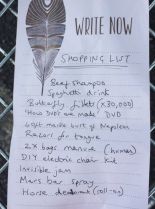 WRITE NOW
SHOPPING LIST
Beef shampoo
Spaghetti drink
Butterfly fillets (x30,000)
'How DVDs are made' DVD
40ft marble bust of Napoleon
Razors for tongue
2x bags manure (human)
DIY electric chair kit
Invisible jam
Mars bar spray
Horse deodorant (roll-on)